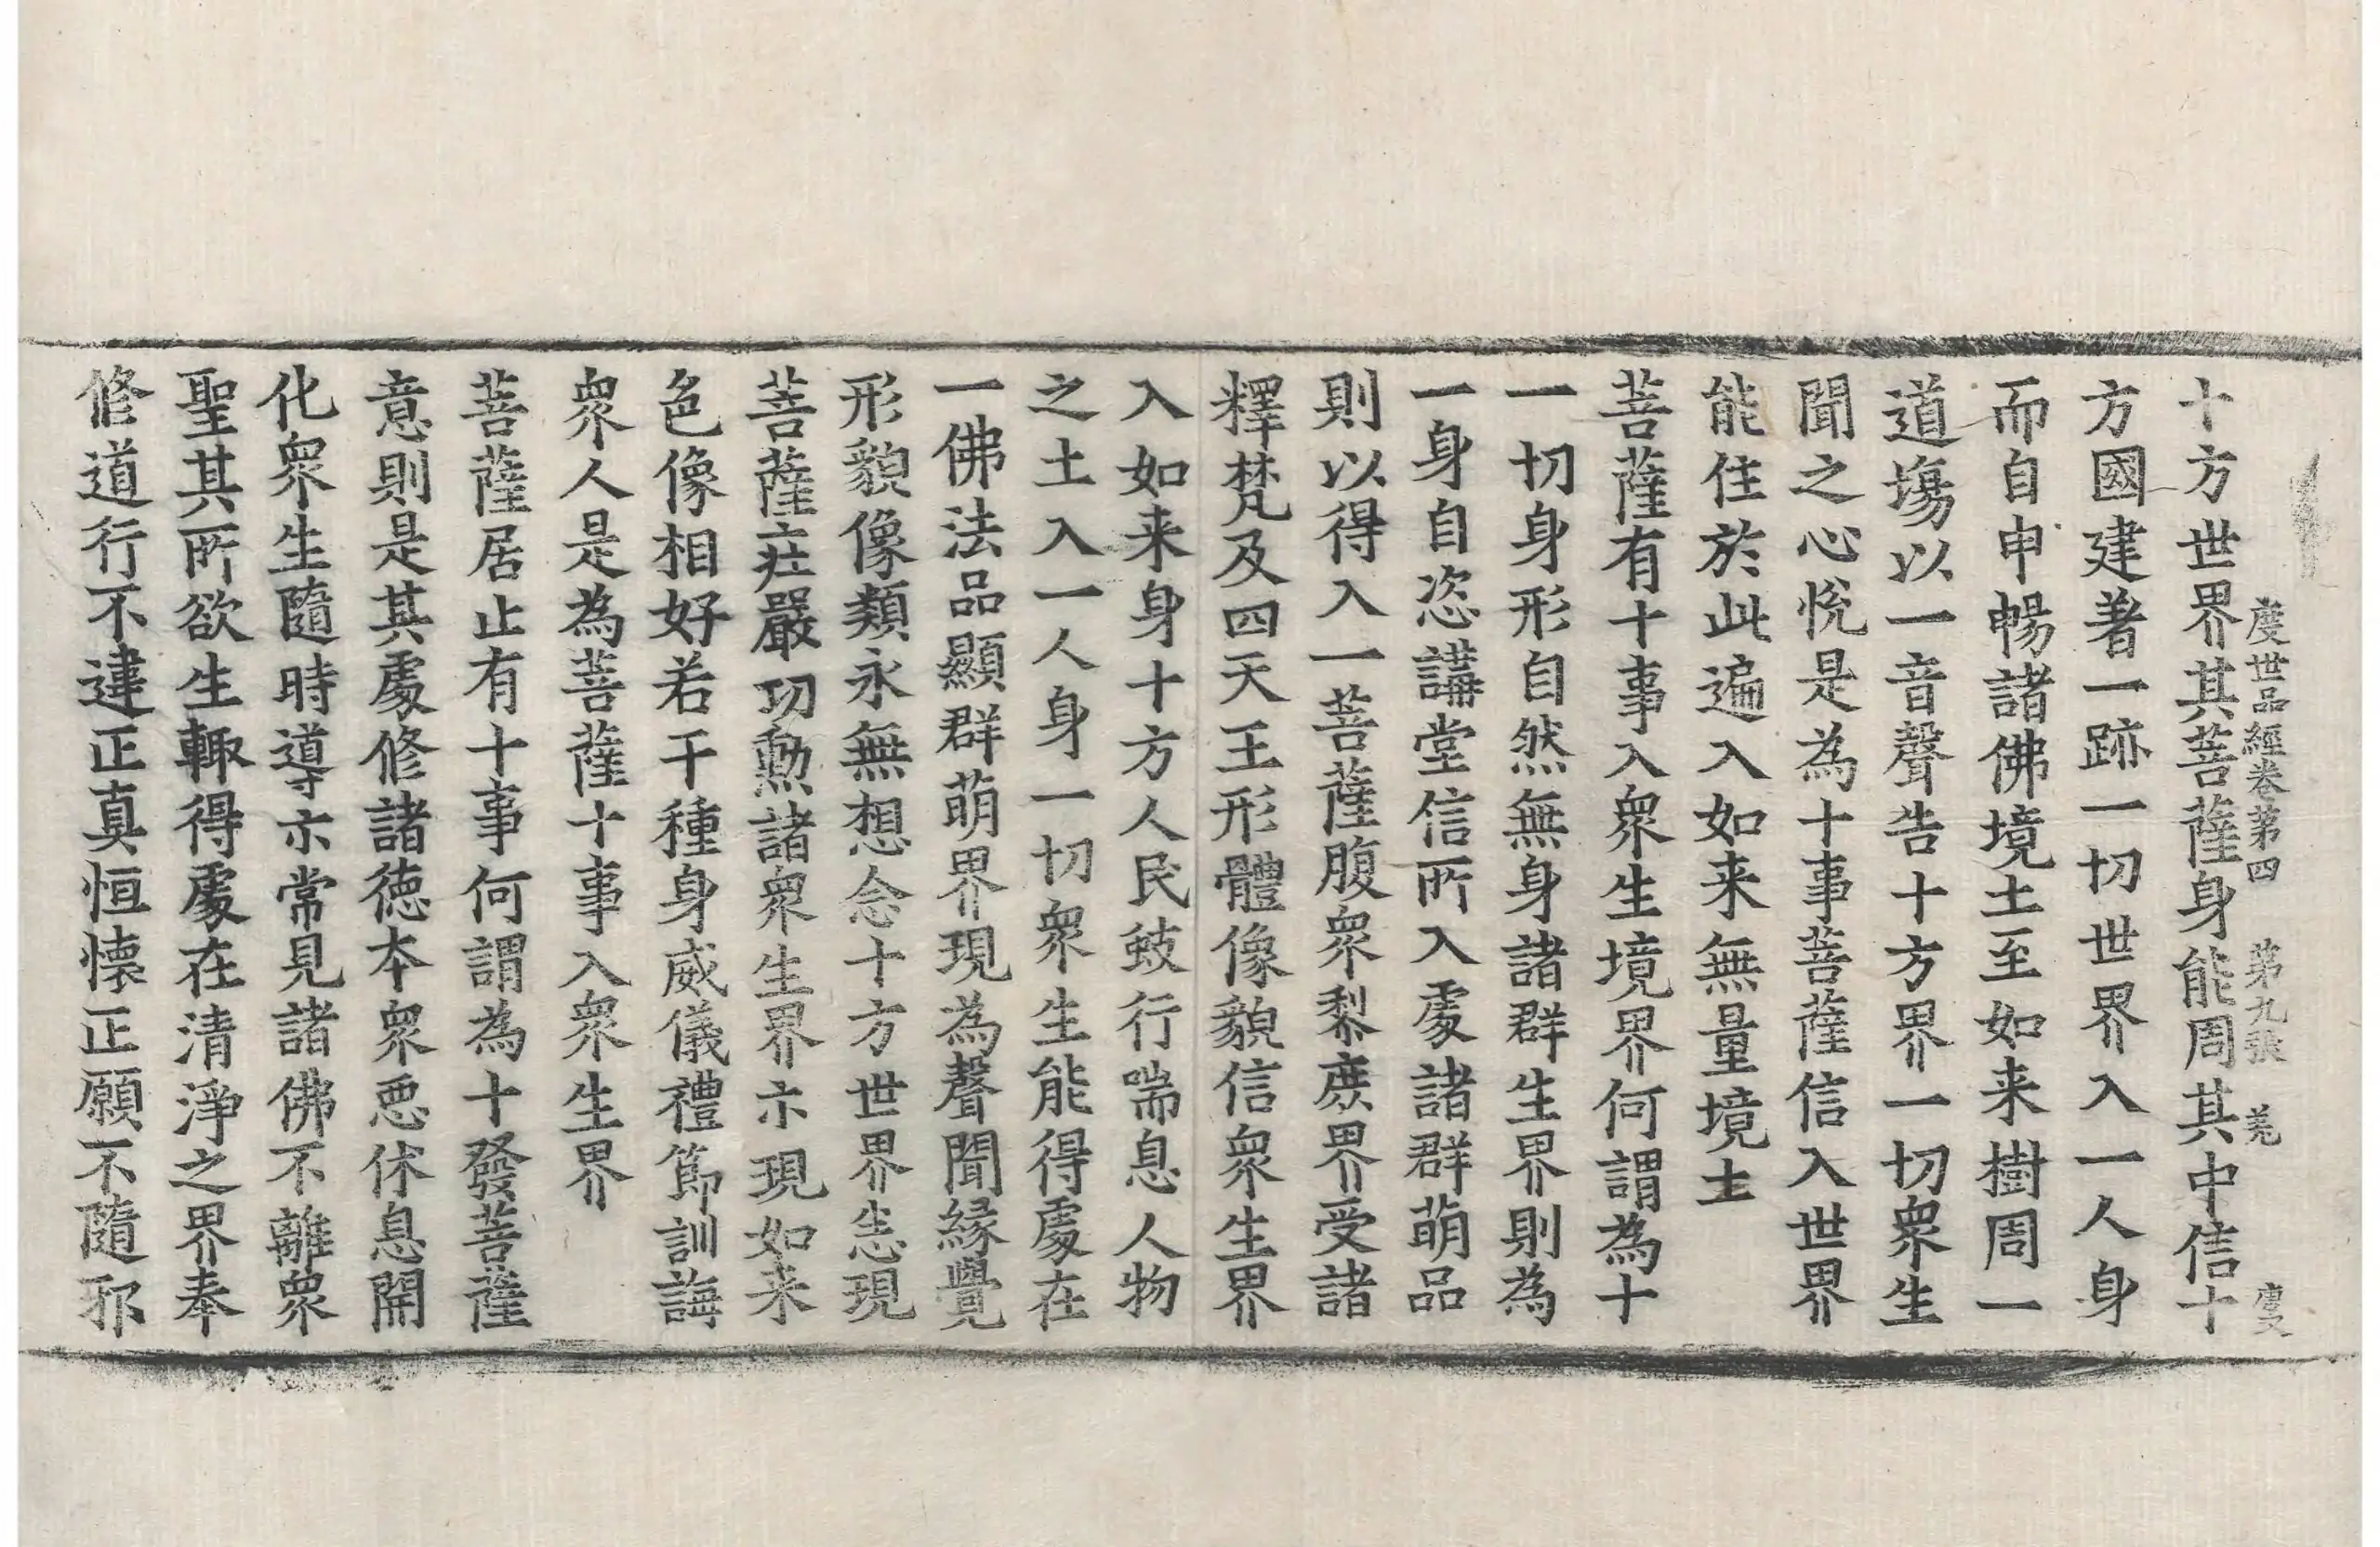 度世品經卷第四 第九張 羌
十方世界其菩薩身能周其中信十
方國建著一跡一切世界入一人身
而自申暢諸佛境土至如来樹周一
道場以一音聲告十方界一切衆生
聞之心悅是為十事菩薩信入世界
能住於此遍入如来無量境土
菩薩有十事入衆生境界何謂為十
一切身形自然無身諸群生界則為
一身自恣講堂信所入處諸群萌品
則以得入一菩薩腹衆黎庶界受諸
釋梵及四天王形體像貌信衆生界
入如来身十方人民蚑行喘息人物
之土入一人身一切衆生能得處在
一佛法品顯群萌界現為聲聞緣覺
形貌像類永無想念十方世界恣現
菩薩莊嚴功勳諸衆生界亦現如来
色像相好若干種身威儀禮節訓誨
衆人是為菩薩十事入衆生界
菩薩居止有十事何謂為十發菩薩
意則是其處修諸德本衆惡休息開
化衆生隨時導亦常見諸佛不離衆
聖其所欲生輙得處在清淨之界奉
修道行不違正真恒懷正願不隨邪